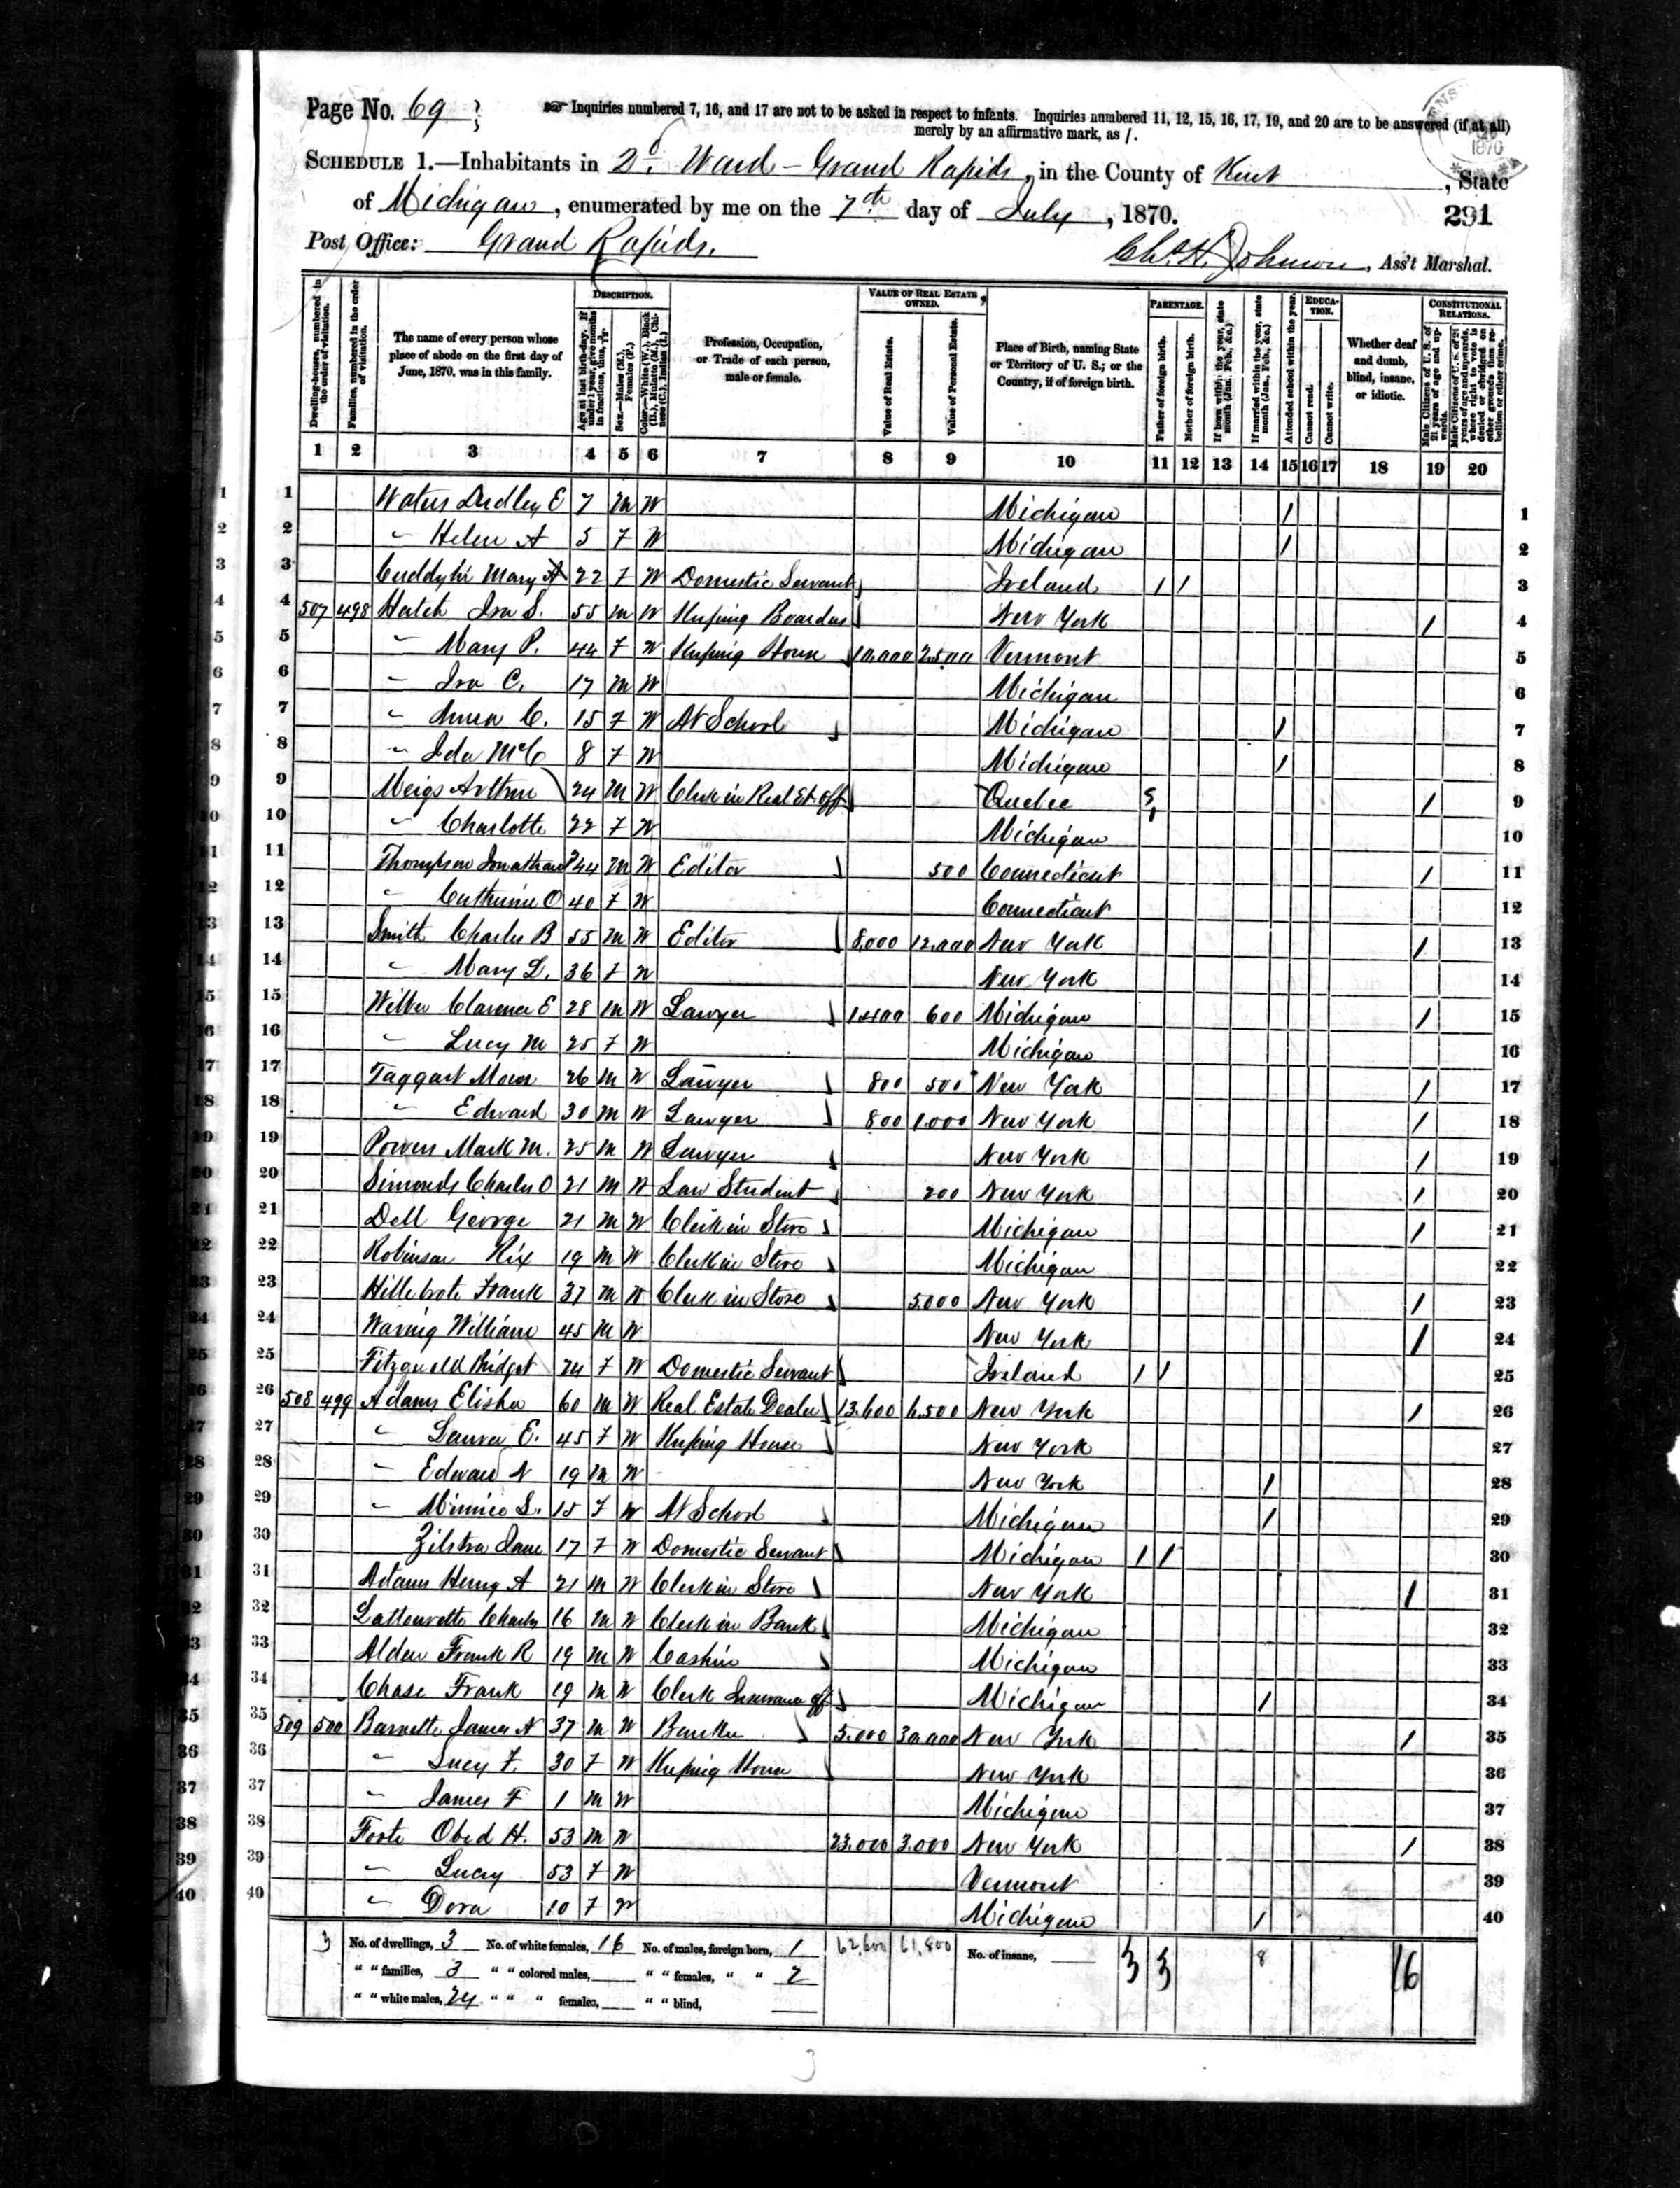 Page No. 69
Inquiries numbered 7, 16, and 17 are not to be asked in respect to infants. Inquiries numbered 11, 12, 15, 16, 17, 19, and 20 are to be answered (if at all)
merely by an affirmative mark, as /.
SCHEDULE 1.—Inhabitants in 2d. Ward - Grand Rapids, in the County of Kent, State
of Michigan, enumerated by me on the 7th day of July, 1870.
291
Post Office: Grand Rapids.
Chs. H. Johnson, Ass't Marshal.
1870
Dwelling-houses, numbered in the order of visitation.
Families, numbered in the order of visitation.
The name of every person whose place of abode on the first day of June, 1870, was in this family.
DESCRIPTION.
Age at last birth-day. If under 1 year, give months in fractions, thus,
Sex.—Males (M.), Females (F.)
Color.—White (W.), Black (B.), Mulatto (M.), Chinese (C.), Indian (I.)
Profession, Occupation, or Trade of each person, male or female.
VALUE OF REAL ESTATE OWNED.
Value of Real Estate.
Value of Personal Estate.
Place of Birth, naming State or Territory of U. S.; or the Country, if of foreign birth.
PARENTAGE.
Father of foreign birth.
Mother of foreign birth.
If born within the year, state month (Jan., Feb., &c.)
If married within the year, state month (Jan., Feb., &c.)
Attended school within the year.
EDUCATION.
Cannot read.
Cannot write.
Whether deaf and dumb, blind, insane, or idiotic.
CONSTITUTIONAL RELATIONS.
Male Citizens of U. S. of 21 years of age and upwards.
Male Citizens of U. S. of 21 years of age and upwards, where right to vote is denied or abridged on other grounds than rebellion or other crime.
1 2 3 4 5 6 7 8 9 10 11 12 13 14 15 16 17 18 19 20
1 Waters Dudley E 7 M W Michigan / 1
2 " Helen A 5 F W Michigan / 2
3 Mary A 22 F W Domestic Servant Ireland / / 3
4 507 498 Hatch Ira S. 55 M W Keeping Boarders New York / 4
5 " Mary P. 44 F W Keeping House 10,000 2,500 Vermont 5
6 " Ira C. 17 M W Michigan 6
7 " C. 15 F W At School Michigan / 7
8 " Ida McC 8 F W Michigan / 8
9 Meigs Arthur 24 M W Clerk in Real Est. Off Quebec / 9
10 " Charlotte 22 F W Michigan 10
11 Thompson Jonathan P 44 M W Editor 500 Connecticut / 11
12 " Catherine O 40 F W Connecticut 12
13 Smith Charles B 55 M W Editor 8,000 12,000 New York / 13
14 " Mary L. 36 F W New York 14
15 Wilber Clarence E 28 M W Lawyer 1,400 600 Michigan / 15
16 " Lucy M 25 F W Michigan 16
17 Taggart Moses 26 M W Lawyer 800 500 New York / 17
18 " Edward 30 M W Lawyer 800 1,000 New York / 18
19 Powers Mark M. 25 M W Lawyer New York / 19
20 Simonds Charles O 21 M W Law Student 200 New York / 20
21 Dell George 21 M W Clerk in Store Michigan / 21
22 Robinson Rix 19 M W Clerk in Store Michigan 22
23 Frank 37 M W Clerk in Store 5,000 New York / 23
24 Waring William 45 M W New York / 24
25 Fitzgerald Bridget 24 F W Domestic Servant Ireland / / 25
26 508 499 Adams Elisha 60 M W Real Estate Dealer 13,600 6,500 New York / 26
27 " Laura E. 45 F W Keeping House New York 27
28 " Edward N 19 M W New York / 28
29 " Minnie L. 15 F W At School Michigan / 29
30 Zilstra Jane 17 F W Domestic Servant Michigan / / 30
31 Adams Henry A 21 M W Clerk in Store New York / 31
32 Lattourette Charles 16 M W Clerk in Bank Michigan 32
33 Alden Frank R 19 M W Cashier Michigan 33
34 Chase Frank 19 M W Clerk Insurance off Michigan / 34
35 509 500 Barnette James N 37 M W Banker 5,000 30,000 New York / 35
36 " Lucy F. 30 F W Keeping House New York 36
37 " James F 1 M W Michigan 37
38 Foote Obed H. 53 M W 23,000 3,000 New York / 38
39 " Lucy 53 F W Vermont 39
40 " Dora 10 F W Michigan / 40
3 No. of dwellings, 3 No. of white females, 16 No. of males, foreign born, 1 62,600 61,800 No. of insane, 3 3 8 16
" " families, 3 " " colored males, " " females, " " 2
" " white males, 24 " " " females, " " blind,
3